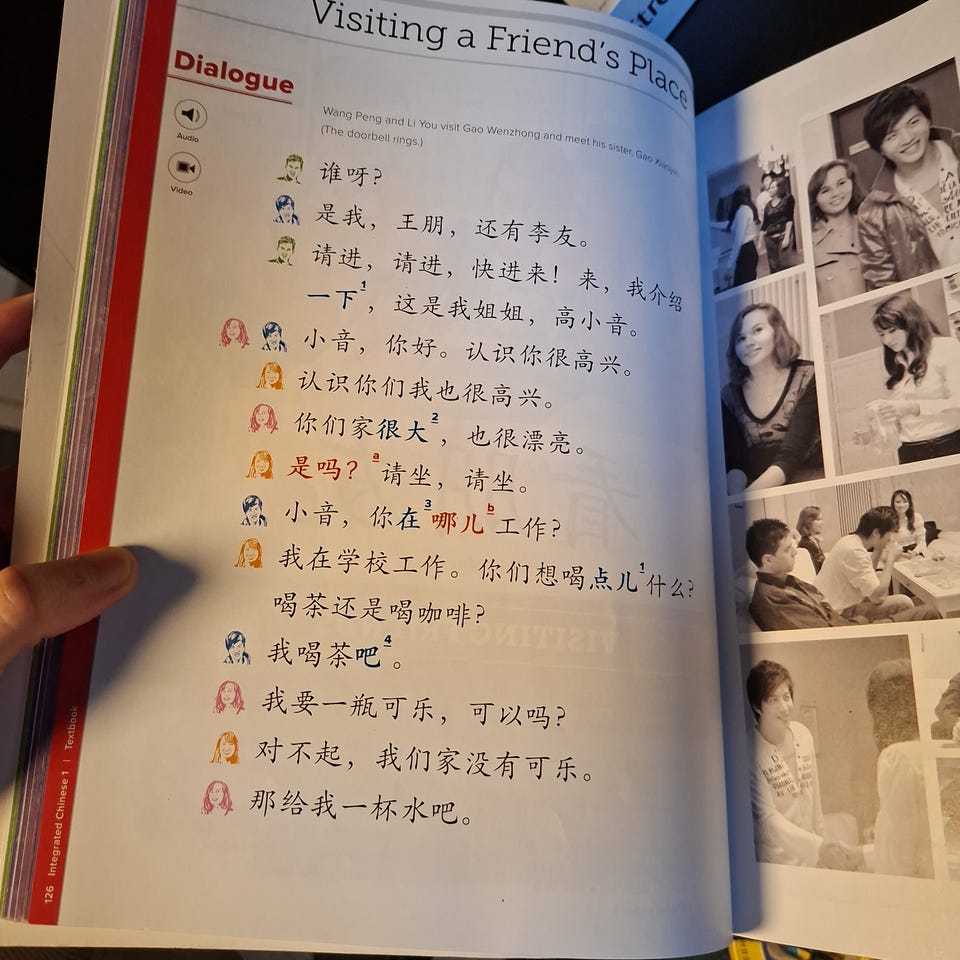 Visiting a Friend's Place
Dialogue
Audio
Video
Wang Peng and Li You visit Gao Wenzhong and meet his sister, Gao Xiaoyin.
(The doorbell rings.)
谁呀?
是我,王朋,还有李友。
请进,请进,快进来!来,我介绍
一下1,这是我姐姐,高小音。
小音,你好。认识你很高兴。
认识你们我也很高兴。
你们家很大2,也很漂亮。
是吗?a请坐,请坐。
小音,你在3哪儿b工作?
我在学校工作。你们想喝点儿1什么?
喝茶还是喝咖啡?
我喝茶吧4。
我要一瓶可乐,可以吗?
对不起,我们家没有可乐。
那给我一杯水吧。
126 Integrated Chinese 1 | Textbook